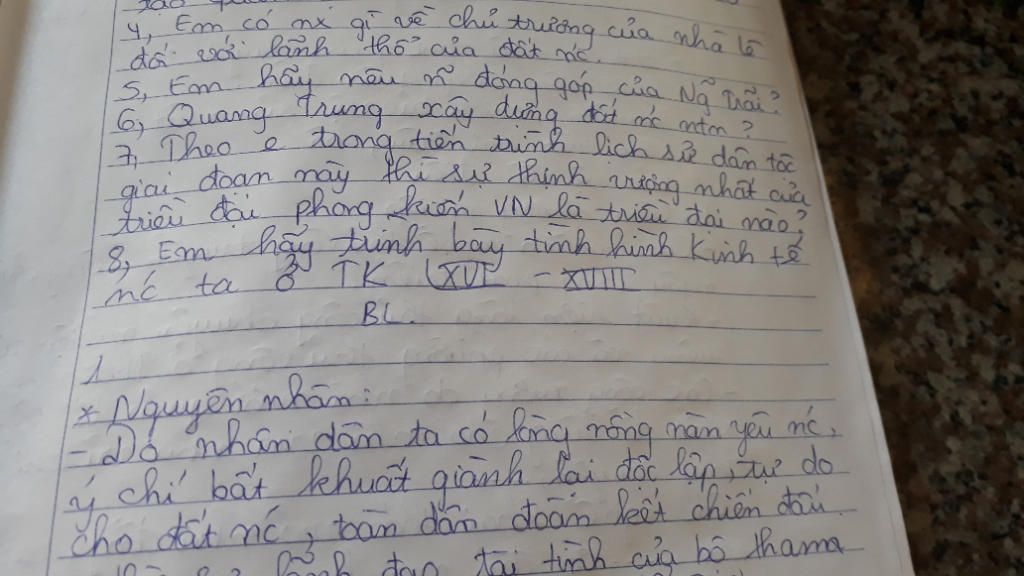 4, Em có nx gì về chủ trương của nhà lê
đối với lãnh thổ của đất nc.
5, Em hãy nêu n~ đóng góp của Ng~ Trãi?
6, Quang Trung xây dựng đất nc ntn?
7, Theo e trong tiến trình lịch sử dân tộc
giai đoạn này thì sự thịnh vượng nhất của
triều đại phong kiến VN là triều đại nào?
8, Em hãy trình bày tình hình Kinh tế
nc ta ở TK XVI - XVIII
BL.
1
* Nguyên nhân:
- Do nhân dân ta có lòng nồng nàn yêu nc,
ý chí bất khuất giành lại độc lập, tự do
cho đất nc, toàn dân đoàn kết chiến đấu.
lãnh đạo tài tình của bộ tham